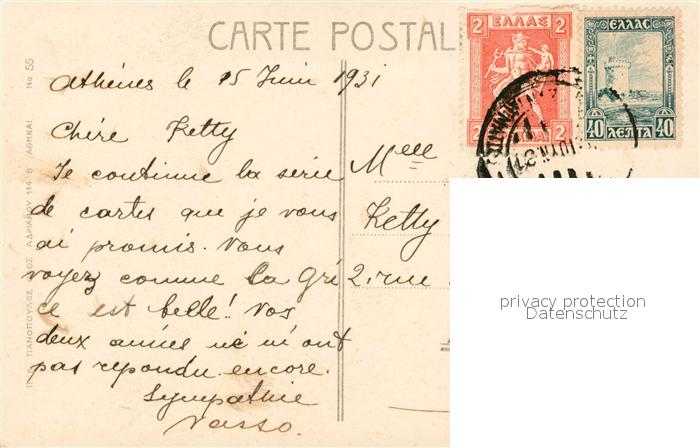 CARTE POSTAL
2 ΕΛΛΑΣ 2
2 2
ΕΛΛΑΣ
40 ΛΕΠΤΑ 40
Athénes le 15 Juin 1931
Chére Ketty
Je continue la serie
de cartes que je vous
ai promis. Vous
voyez comme la Grè
ce est belle! Vos
deux amies ne m'ont
pas repondu encore.
Sympathie
Vasso.
Melle
Ketty
2, rue
privacy protection
Datenschutz
No 55
ΑΘΗΝΑΙ
ΑΔΡΙΑΝΟΥ 114-
ΠΑΝΟΠΟΥΛΟΣ